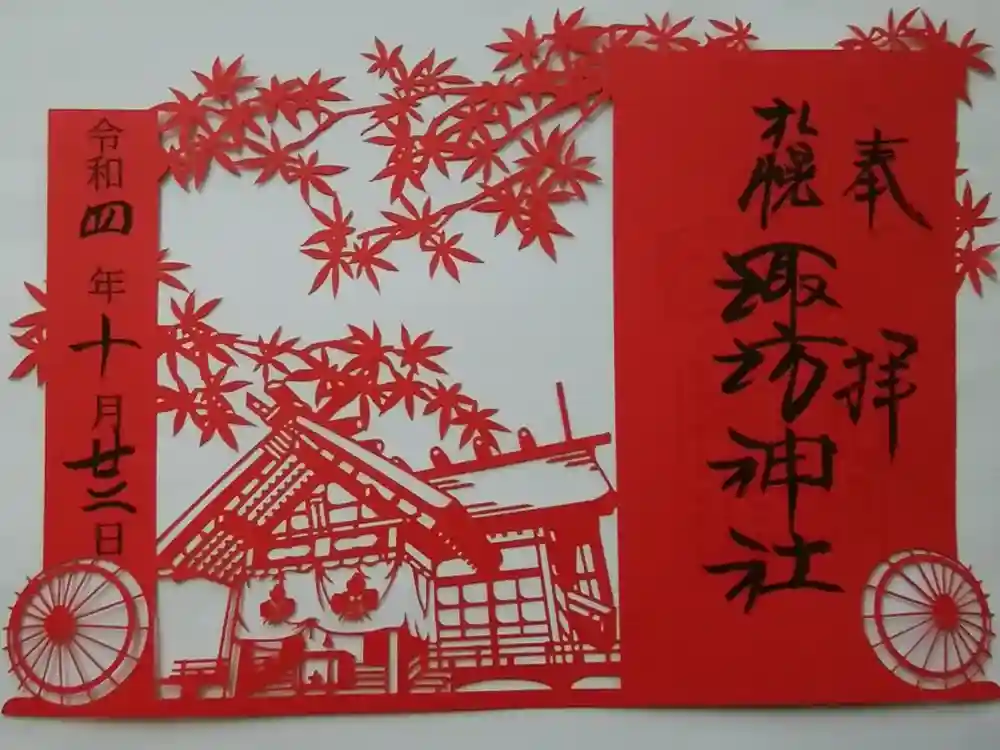 奉拝
札幌諏訪神社
令和四年十月廿二日